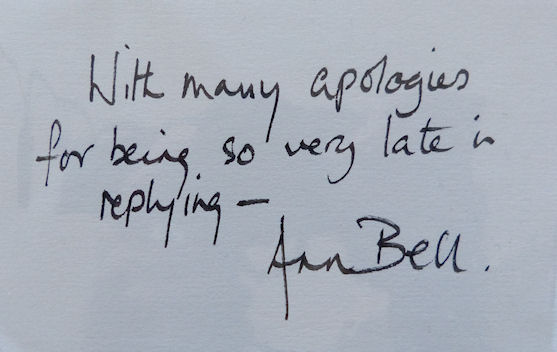 With many apologies
for being so very late in
replying —
Ann Bell.